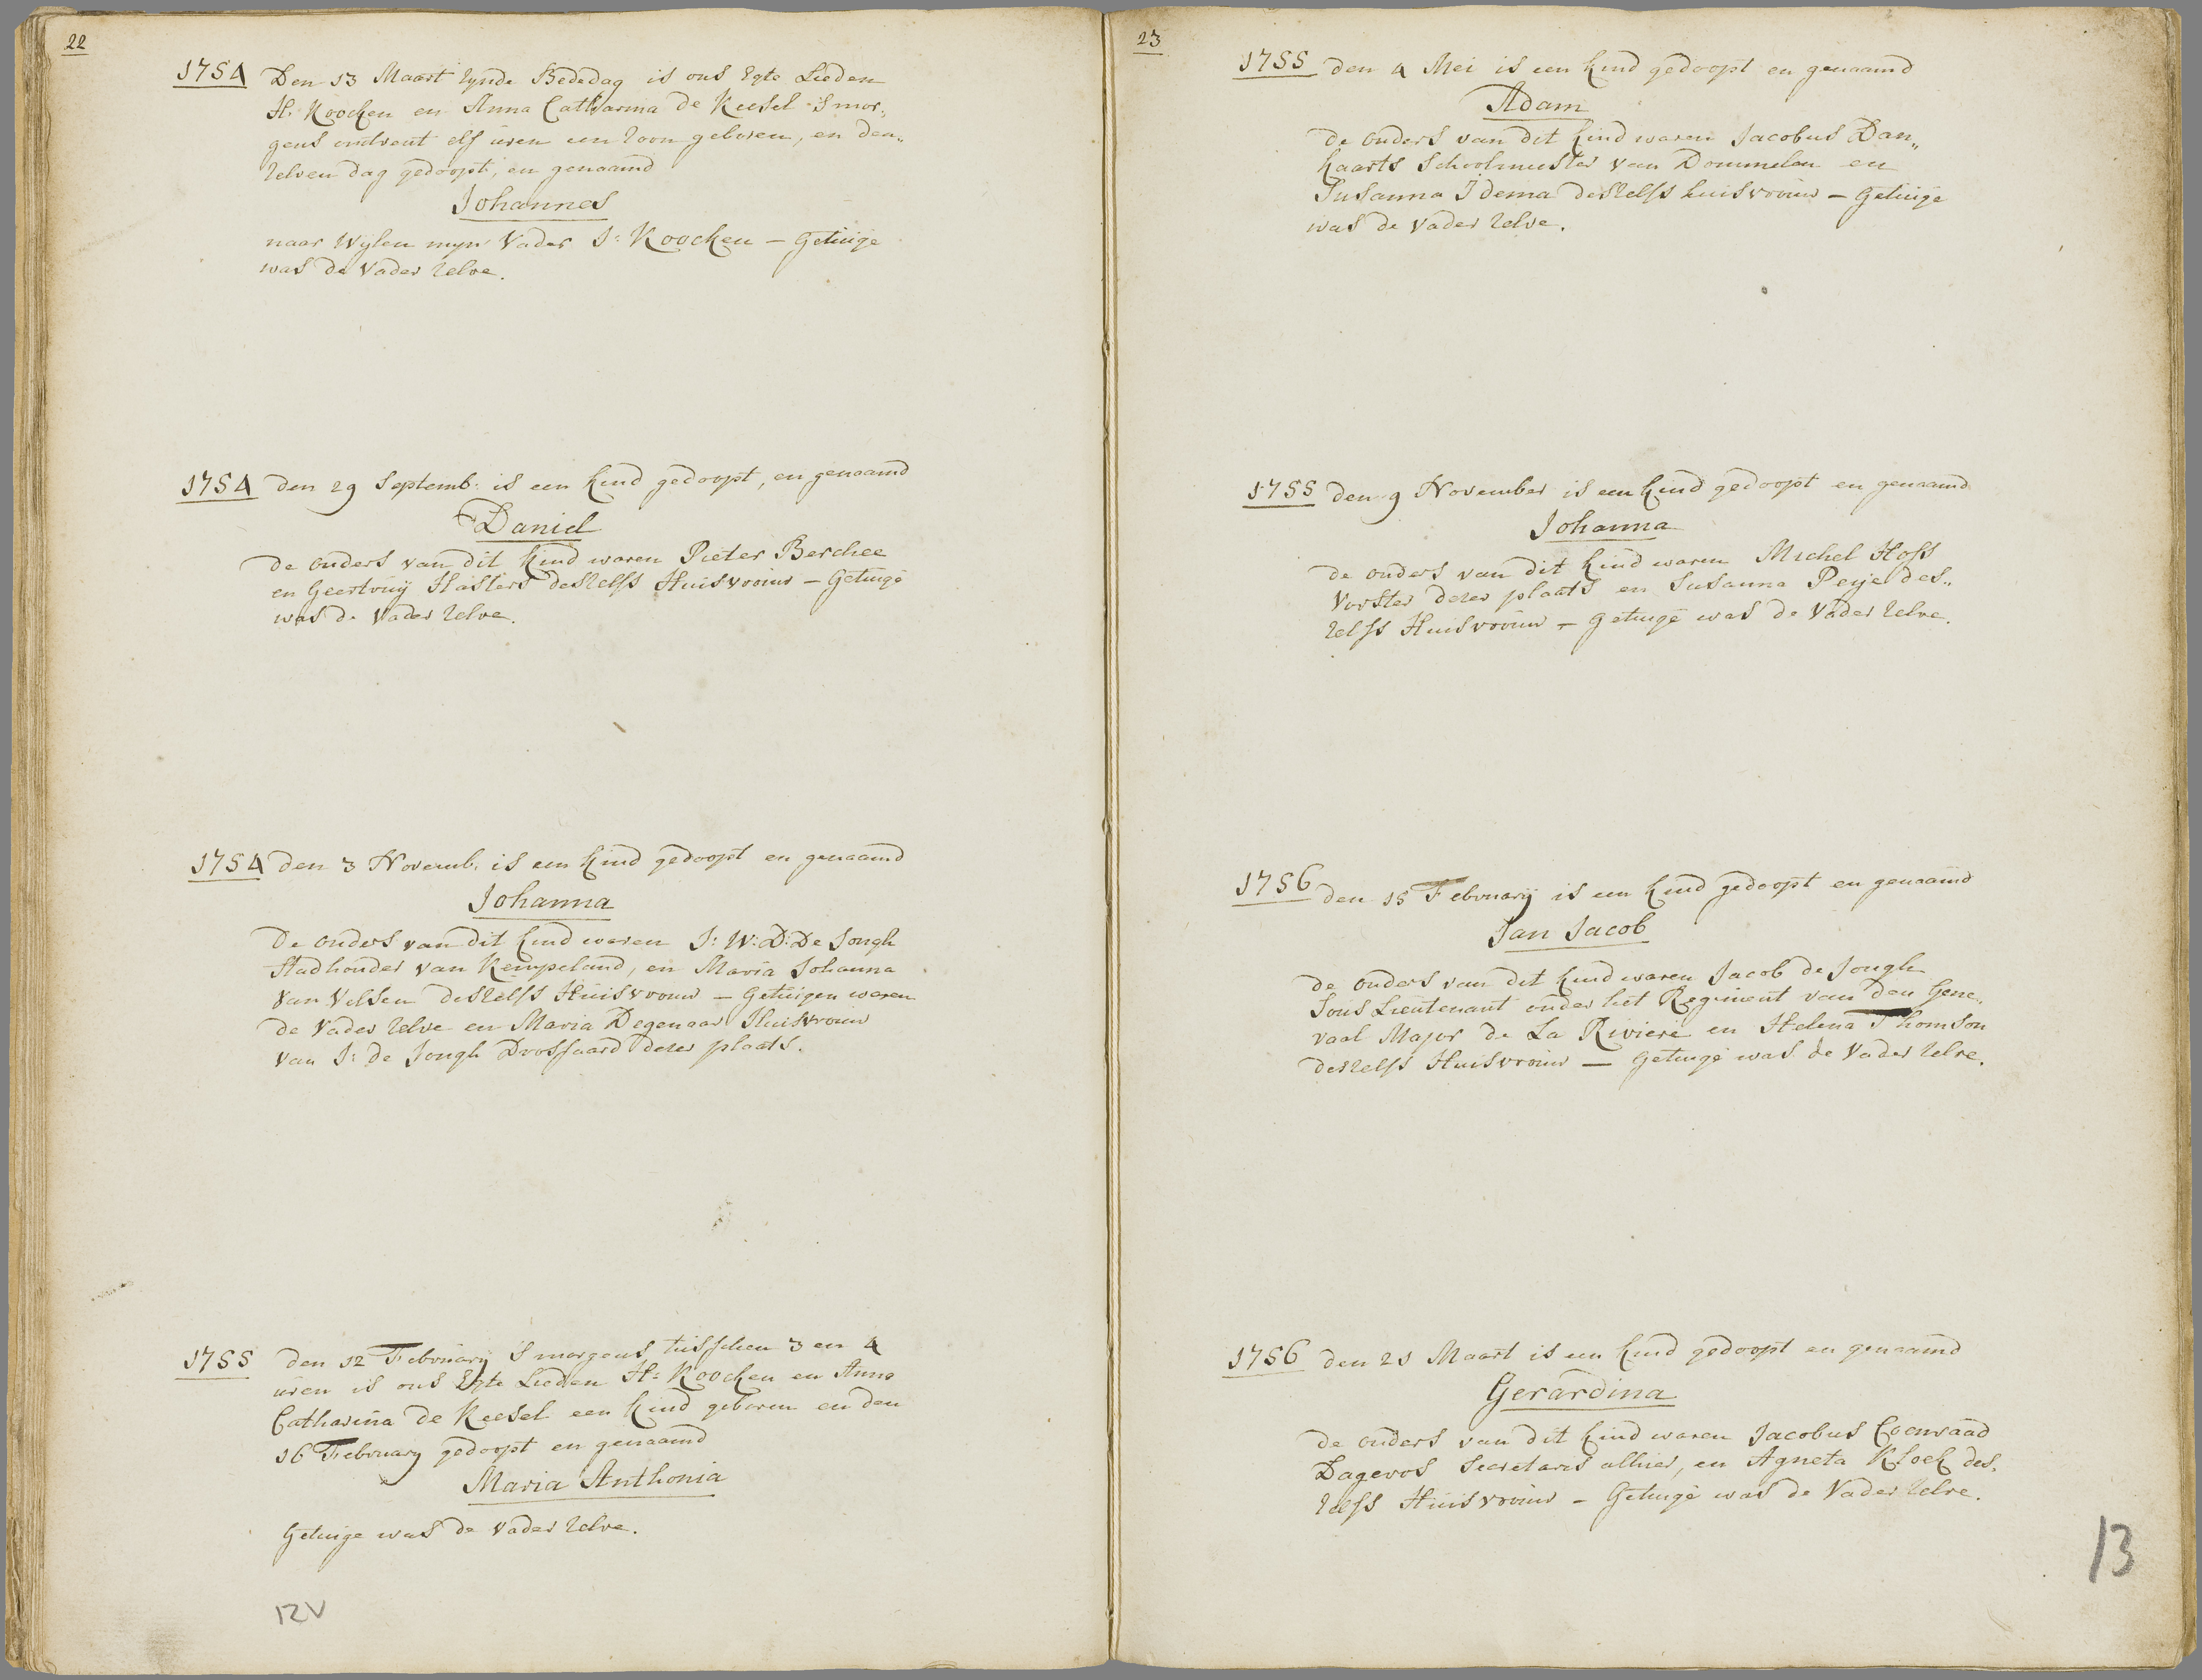 22
1754 Den 13 Maart zynde Bededag is ons Egte Lieden
H: Koocken en Anna Catharina de Keesel Smor„
gens omtrent elf uren een zoon geboren, en den„
zelven dag gedoopt, en genaamd
Johannes
naar Wylen myn Vader J: Koocken – Getuige
was de Vader zelve.
1754 den 29 Septemb: is een kind gedoopt, en genaamd
Daniel
de ouders van dit kind waren Pieter Berchee
en Geertruij Hasters deszelfs Huisvrouw – Getuige
was de Vader zelve.
1754 den 3 Novemb: is een kind gedoopt en genaamd
Johanna
De ouders van dit kind waren J: W: D: De Jongh
Stadhouder van Kempeland, en Maria Johanna
Van Velsen deszelfs Huisvrouw – Getuigen waren
de Vader zelve en Maria Degenaar Huisvrouw
van J: de Jongh Drossaard dezer plaats.
1755 den 12 February Smorgens tusschen 3 en 4
uren is ons Egte Lieden H: Koocken en Anna
Catharina de Keesel een kind geboren en den
16 February gedoopt en genaamd
Maria Anthonia
Getuige was de Vader zelve.
12V
23
1755 den 4 Mei is een kind gedoopt en genaamd
Adam
de ouders van dit kind waren Jacobus Dan„
kaarts Schoolmeester van Dommelen en
Susanna Idema deszelfs huisvrouw – Getuige
was de Vader zelve.
1755 den 9 November is een kind gedoopt en genaamd
Johanna
de ouders van dit kind waren Michel Hoss
Vorster dezer plaats en Susanna Peije des„
zelfs Huisvrouw – getuige was de Vader zelve.
1756 den 15 February is een kind gedoopt en genaamd
Jan Jacob
de ouders van dit kind waren Jacob de Jongh
Sous Lieutenant onder het Regiment van den Gene„
raal Major de La Riviere en Helena Thomson
deszelfs Huisvrouw – Getuige was de Vader zelve.
1756 den 21 Maart is een kind gedoopt en genaamd
Gerardina
de ouders van dit kind waren Jacobus Coenraad
Dagevos Secretaris alhier, en Agneta Kloek des„
zelfs Huisvrouw – Getuige was de Vader zelve.
13